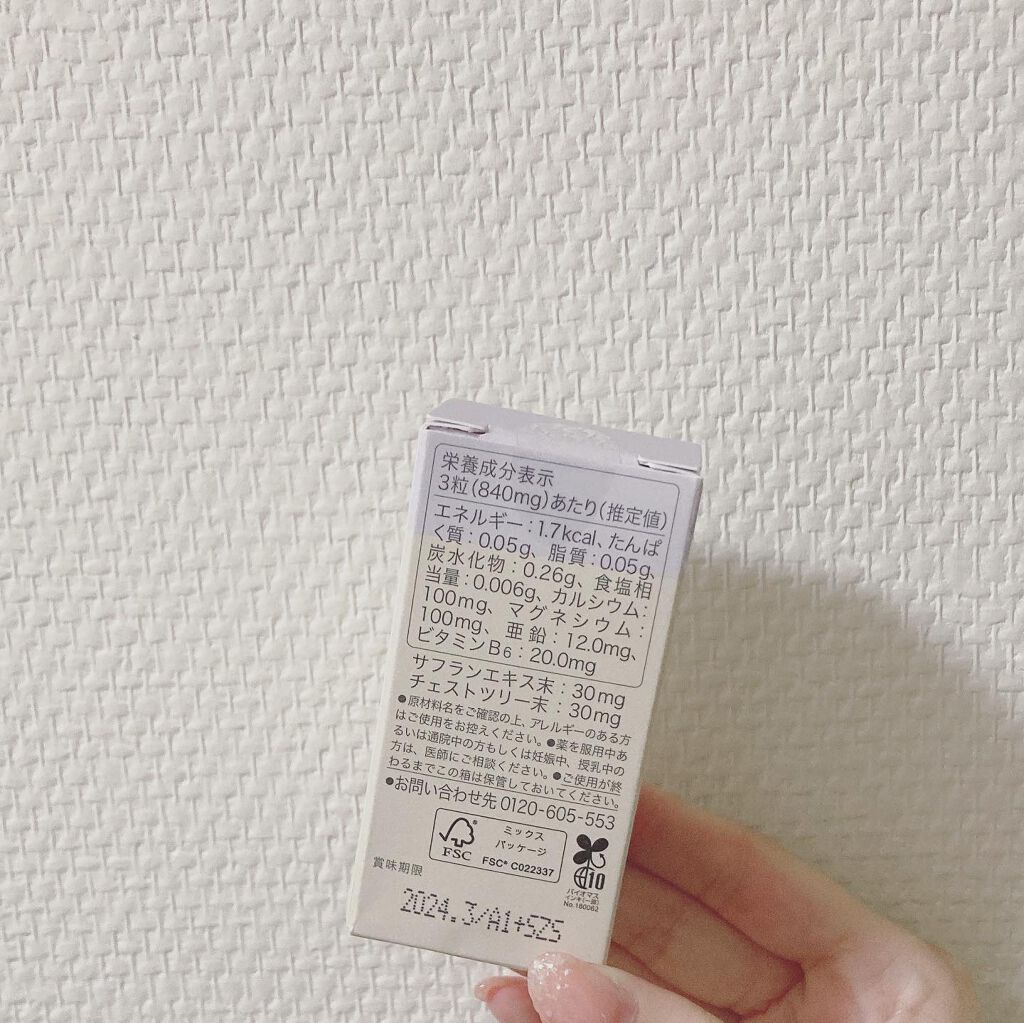 栄養成分表示
3粒(840mg)あたり(推定値)
エネルギー：1.7kcal、たんぱ
く質：0.05g、脂質：0.05g、
炭水化物：0.26g、食塩相
当量：0.006g、カルシウム：
100mg、マグネシウム：
100mg、亜鉛：12.0mg、
ビタミンB6：20.0mg
サフランエキス末：30mg
チェストツリー末：30mg
●原材料名をご確認の上、アレルギーのある方
はご使用をお控えください。●薬を服用中あ
るいは通院中の方もしくは妊娠中、授乳中の
方は、医師にご相談ください。●ご使用が終
わるまでこの箱は保管しておいてください。
●お問い合わせ先 0120-605-553
FSC
ミックス
パッケージ
FSC® C022337
10
バイオマス
インキ(一部)
No.180062
賞味期限
2024.3/A1+SZS